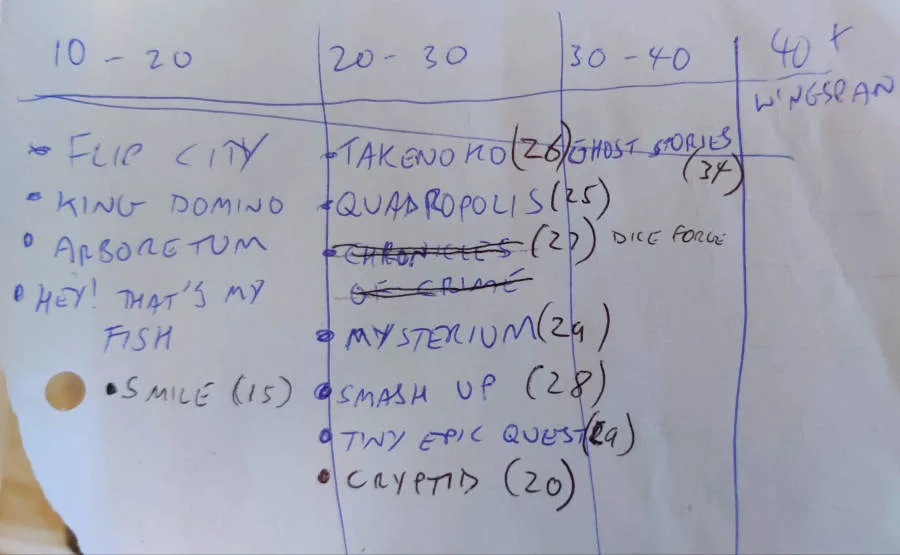 10 - 20 20 - 30 30 - 40 40+
WINGSPAN
• FLIP CITY
• KING DOMINO
• ARBORETUM
• HEY! THAT'S MY
FISH
• SMILE (15)
• TAKENOKO (26)
• QUADROPOLIS (25)
• CHRONICLES (27)
OF CRIME
• MYSTERIUM (29)
• SMASH UP (28)
• TINY EPIC QUEST (29)
• CRYPTID (20)
GHOST STORIES
(34)
DICE FORGE